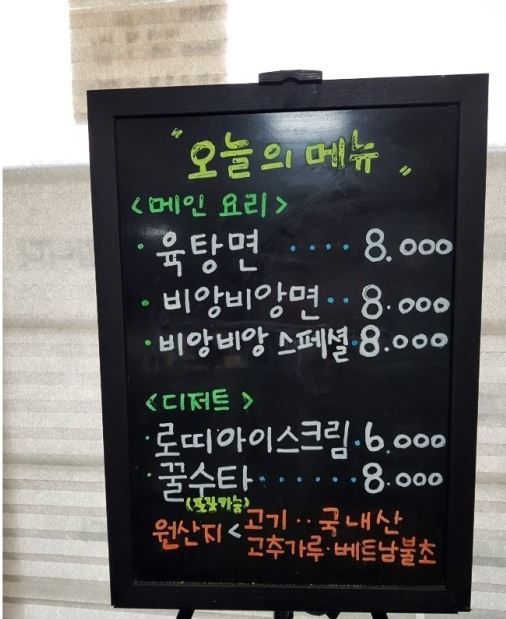 "오늘의 메뉴"
<메인 요리>
· 육탕면 ···· 8.000
· 비앙비앙면 ·· 8.000
· 비앙비앙 스페셜 · 8.000
<디저트>
· 로띠아이스크림 · 6.000
· 꿀수타 ······ 8.000
(포장가능)
원산지 < 고기 ·· 국내산
고추가루 · 베트남불초